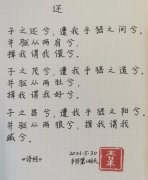 还
子之还兮，遭我乎峱之间兮。
并驱从两肩兮，
揖我谓我儇兮。
子之茂兮，遭我乎峱之道兮。
并驱从两牡兮，
揖我谓我好兮。
子之昌兮，遭我乎峱之阳兮。
并驱从两狼兮，揖我谓我
臧兮。
《诗经》
2021-5-30